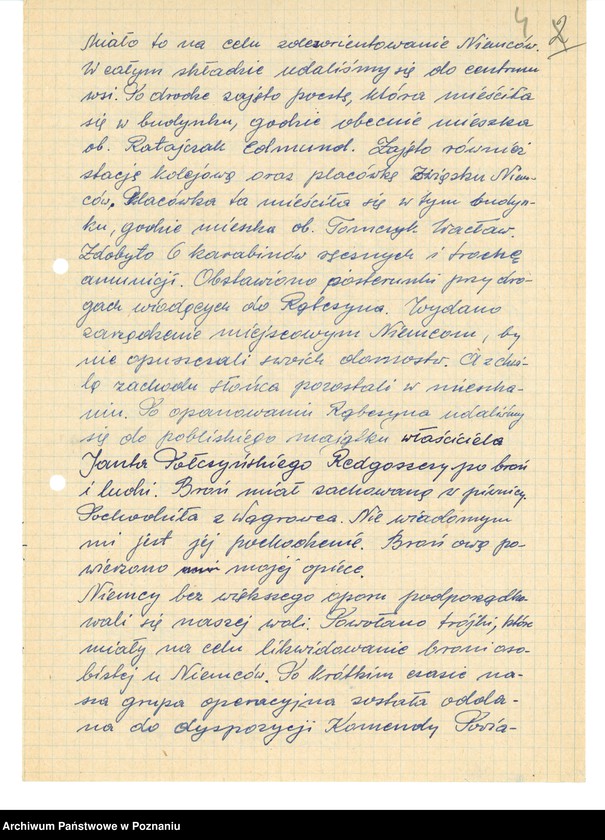 4 2
Miało to na celu zdezorientowanie Niemców.
W całym składzie udaliśmy się do centrum
wsi. Po drodze zajęto pocztę, która mieściła
się w budynku, gdzie obecnie mieszka
ob. Ratajczak Edmund. Zajęto również
stację kolejową oraz placówkę Związku Niem-
ców. Placówka ta mieściła się w tym budyn-
ku, gdzie mieszka ob. Tomczyk Wacław.
Zdobyto 6 karabinów ręcznych i trochę
amunicji. Obstawiono posterunki przy dro-
gach wiodących do Rąbczyna. Wydano
zarządzenie miejscowym Niemcom, by
nie opuszczali swoich domostw. A z chwi-
lą zachodu słońca pozostali w mieszka-
niu. Po opanowaniu Rąbczyna udaliśmy
się do pobliskiego majątku właściciela
Janta Połczyńskiego Redgoszczy po broń
i ludzi. Broń miał zachowaną w piwnicy.
Pochodziła z Wągrowca. Nie wiadomym
mi jest jej pochodzenie. Broń ową po-
wierzono mojej opiece.
Niemcy bez większego oporu podporządko
wali się naszej woli. Powołano trójki, które
miały na celu likwidowanie broni oso-
bistej u Niemców. Po krótkim czasie na-
sza grupa operacyjna została odda-
na do dyspozycji Komendy Powia-
Archiwum Państwowe w Poznaniu